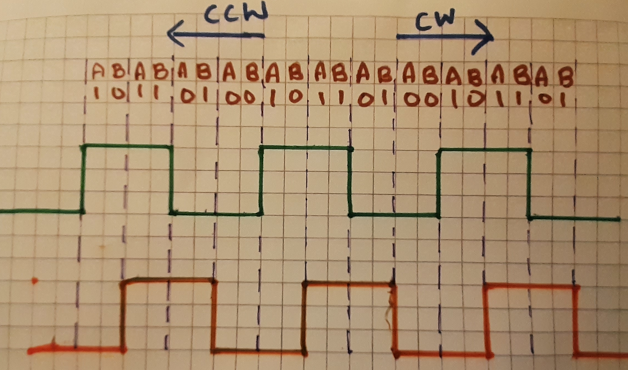 CCW CW
A B A B A B A B A B A B A B A B A B A B A B
1 0 1 1 0 1 0 0 1 0 1 1 0 1 0 0 1 0 1 1 0 1